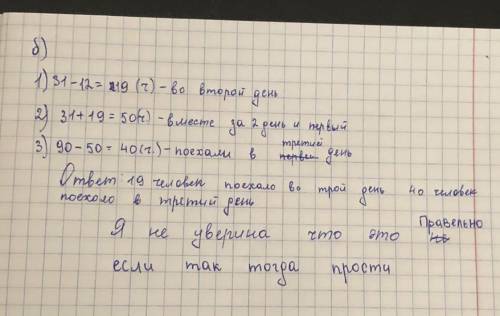 б)
1) 31-12= 19 (ч) - во второй день
2) 31+19 = 50(ч) - вместе за 2 день и первый
3) 90-50 = 40(ч.) - поехали в третий день
Ответ: 19 человек поехало во трой день 40 человек
поехало в третий день
Я не уверина что это Правельно
если так тогда прости